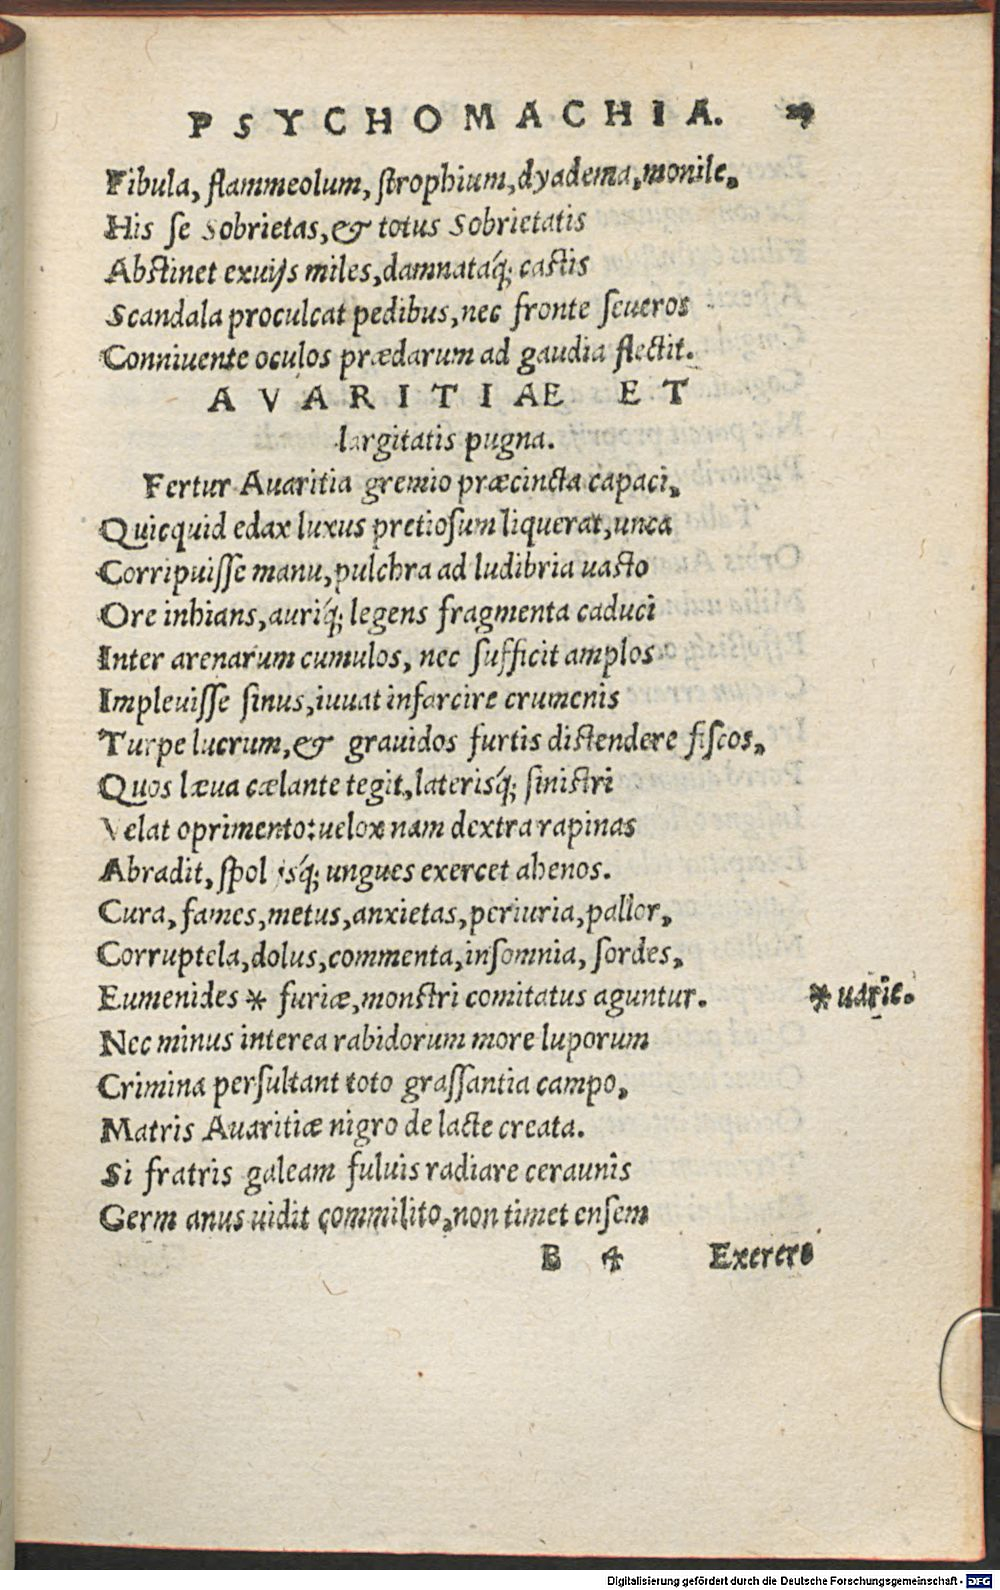 PSYCHOMACHIA.
Fibula, flammeolum, ſtrophium, dyadema, monile,
His ſe Sobrietas, & totus Sobrietatis
Abſtinet exuijs miles, damnataq́; caſtis
Scandala proculcat pedibus, nec fronte ſeueros
Conniuente oculos prædarum ad gaudia flectit.
AVARITIAE ET
largitatis pugna.
Fertur Auaritia gremio præcincta capaci,
Quicquid edax luxus pretioſum liquerat, unca
Corripuiſſe manu, pulchra ad ludibria uaſto
Ore inhians, auriq́; legens fragmenta caduci
Inter arenarum cumulos, nec ſufficit amplos
Impleuiſſe ſinus, iuuat infarcire crumenis
Turpe lucrum, & grauidos furtis diſtendere fiſcos,
Quos læua cælante tegit, laterisq́; ſiniſtri
Velat oprimento: uelox nam dextra rapinas
Abradit, ſpol jsq́; ungues exercet ahenos.
Cura, fames, metus, anxietas, periuria, pallor,
Corruptela, dolus, commenta, inſomnia, ſordes,
Eumenides * furiæ, monſtri comitatus aguntur. * uarie.
Nec minus interea rabidorum more luporum
Crimina perſultant toto graſſantia campo,
Matris Auaritiæ nigro de lacte creata.
Si fratris galeam fuluis radiare ceraunis
Germ anus uidit commilito, non timet enſem
B 4 Exerere
Digitalisierung gefördert durch die Deutsche Forschungsgemeinschaft - DFG